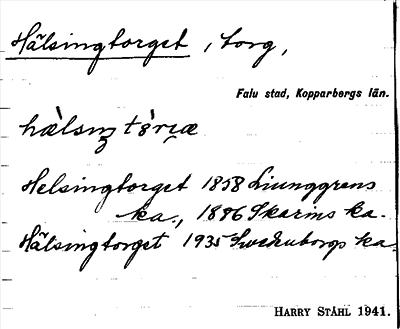 Hälsingtorget, torg,
Falu stad, Kopparbergs län.
Helsingtorget 1858 Ljunggrens
ka., 1886 Skarins ka.
Hälsingtorget 1935 Swedenborgs ka
HARRY STÅHL 1941.